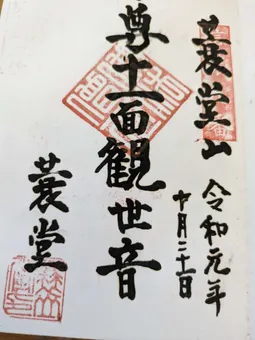 蓑堂山
令和元年
十月三十一日
尊十一面観世音
蓑堂